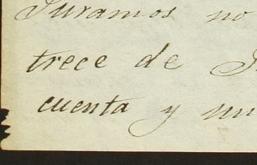 Juramos no
trece de
cuenta y un